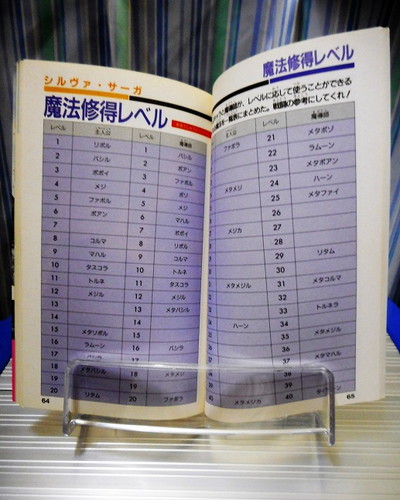 シルヴァ・サーガ
魔法修得レベル
レベル 主人公 レベル 魔導師
1 リポル 1 バシル
2 バシル 2 ボアン
3 ポポイ 3 ファボル
4 メジ 4 ポゾ
5 ファボル 5 メジ
6 ボアン 6 マハル
7 7 ポポイ
8 コルマ 8 リポル
9 マハル 9 コルマ
10 タスコラ 10 トルネ
11 トルネ 11 タスコラ
12 メジル 12 メジル
13 13 メタバシル
14 14
15 メタリポル 15
16 ラムーン 16 バシラ
17 17
18 メタバシル 18
19 19
20 リタム 20 ファボラ
64
魔法修得レベル
魔導師が、レベルに応じて使うことができる
一覧表にまとめた。戦闘の参考にしてくれ!
レベル 魔導師
ファボラ 21 メタポゾ
22 ラムーン
23 メタボアン
メタメジ 24 ハーン
25 メタファイ
26
メジカ 27
28
29 リタム
30
メタメジル 31 メタコルマ
32
33 トルネラ
ハーン 34
35 メタメジル
36
37 メタマハル
38
39
メラメジカ 40
65